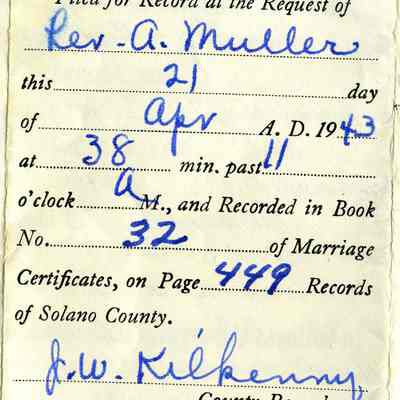 Filed for Record at the Request of
Rev. A. Muller
this 21 day
of Apr A. D. 1943
at 38 min. past 11
o'clock A M., and Recorded in Book
No. 32 of Marriage
Certificates, on Page 449 Records
of Solano County.
J. W. Kilkenny
County Recorder